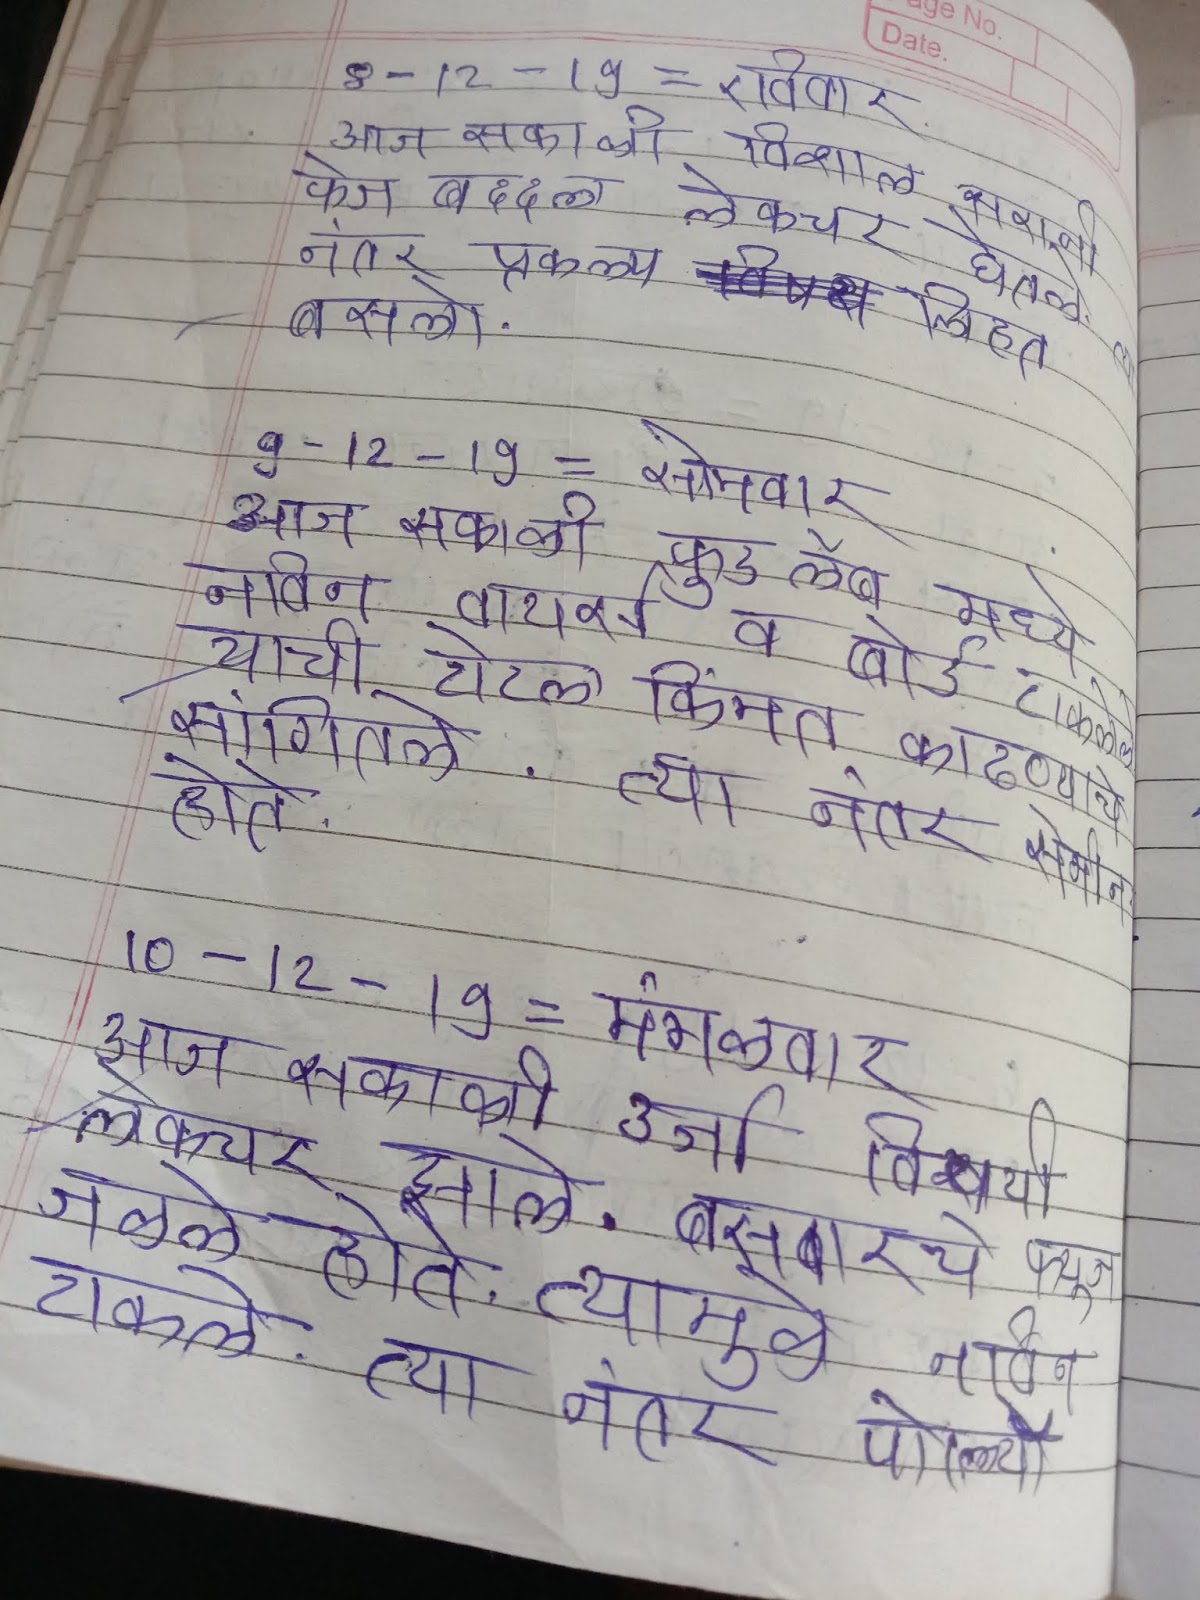 Page No.
Date.
8-12-19 = रविवार
आज सकाळी विशाल सरांनी
फेज बद्दल लेक्चर घेतले.
नंतर प्रकल्प लिहत
बसलो.
9-12-19 = सोमवार
आज सकाळी फुड लॅब मध्ये
नविन वायर्स व बोर्ड टाकलेले
याची टोटल किंमत काढण्याचे
सांगितले. त्या नंतर सेमीन
होते.
10-12-19 = मंगळवार
आज सकाळी उर्जा विषयी
लेक्चर झाले. बसबारचे फ्यूज
जळले होते. त्यामुळे नविन
टाकले. त्या नंतर